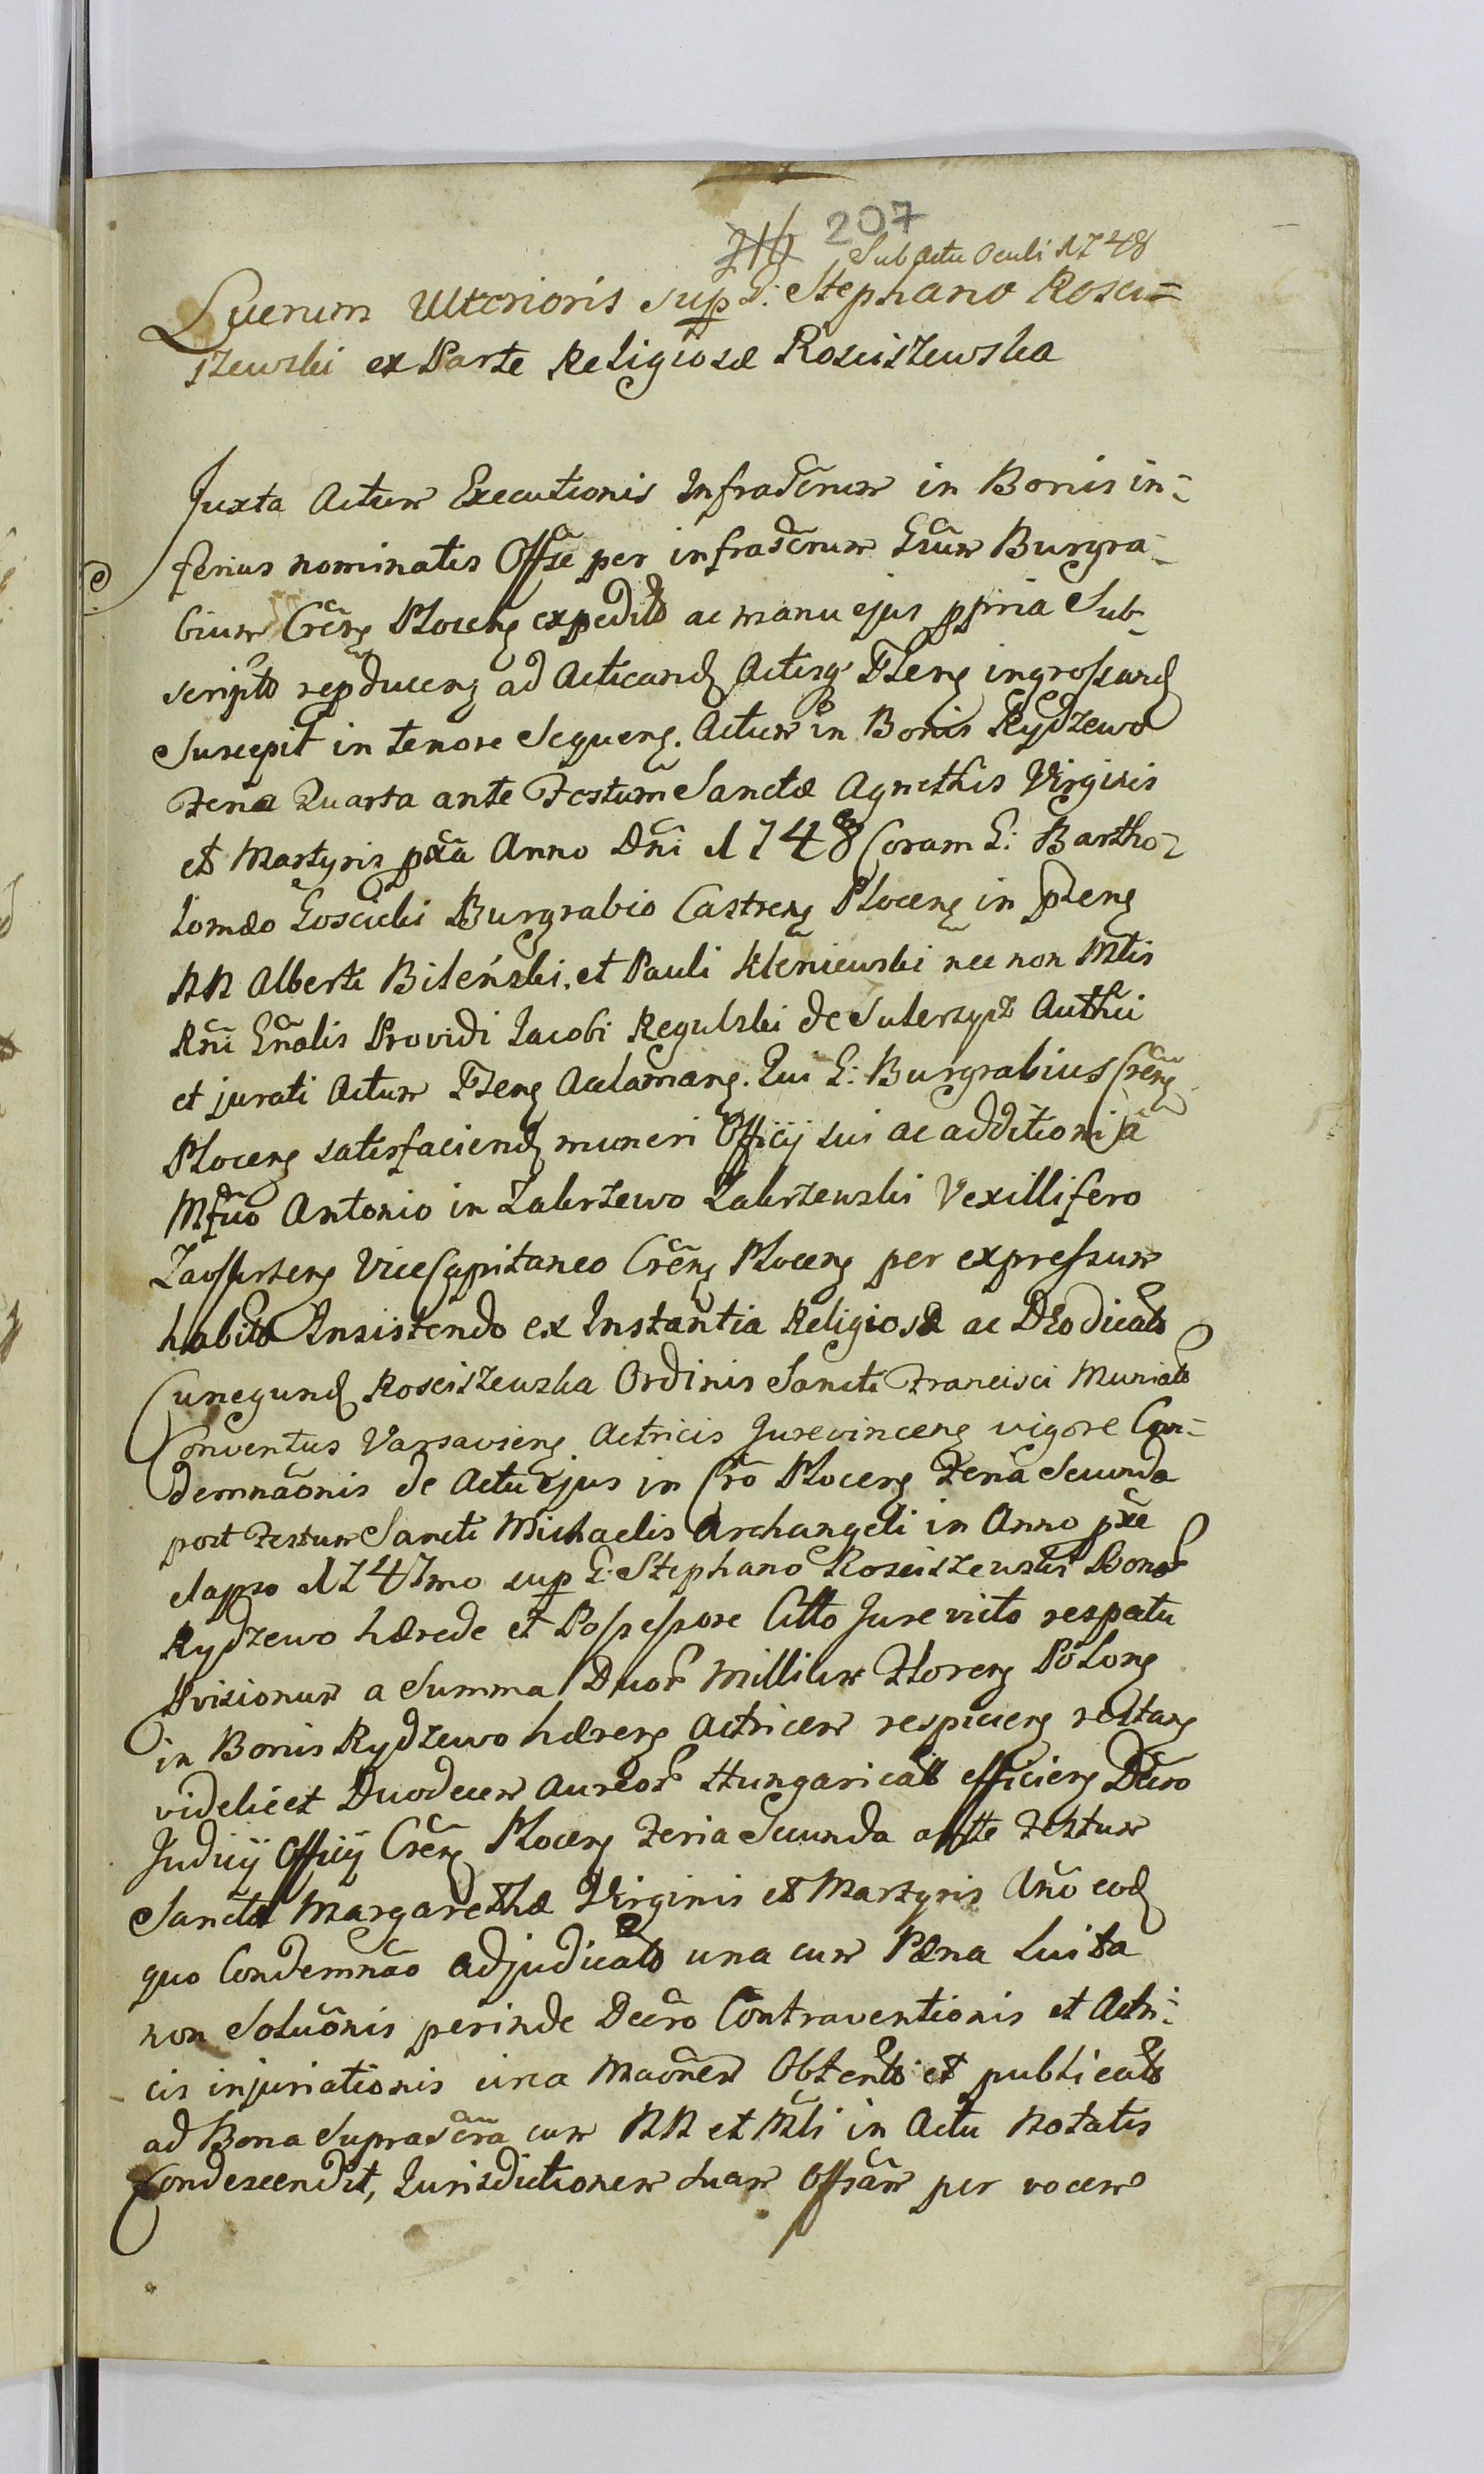 216 207
Sub Actu Oculi 1748
Lucrum Ulterioris sup G: Stephano Rosci=
szewski ex Parte Religiosæ Rosciszewska
Juxta Actum Executionis Infrascrum in Bonis in-
ferius nominatis Offse per infrascrum Grum Burgra-
bium Creng Ploceng expedito ac manu ejus ppria Sub-
scripto repduceng ad Acticand Actisq ingrossand
Suscepit in tenore Sequeng. Actum in Bonis Rydzewo
Feria Quarta ante Festum Sanctæ Agnethis Virginis
et Martyris pxa Anno Dni 1748 Coram G: Bartho-
lomæo Goscicki Burgrabio Castreng Ploceng in pseng
NN Alberti Bileński, et Pauli Kleniewski nec non Mtis
Rni Gnalis Providi Jacobi Regulski de Sulerzysz Authci
et jurati Actum Pseng Acclamang. Qui G: Burgrabius Creng
Ploceng satisfaciend muneri Officij sui ac additioni a
Mfico Antonio in Zakrzewo Zakrzewski Vexillifero
Zawskrzeng ViceCapitaneo Creng Ploceng per expressum
habito Insistendo ex Instantia Religiosæ ac Dÿodicatæ
Cunegund Rosciszewska Ordinis Sancti Francisci Munialis
Conventus Varsavieng Actricis Jurevinceng vigore Con-
demnaonis de Actu ejus in Cro Ploceng Feria Secunda
post Festum Sancti Michaelis Archangeli in Anno pxe
elapso 1747mo sup G: Stephano Rosciszewski Bonor
Rydzewo hærede et Possessore Citto Jurevicto respectu
Pvisionum a Summa Duor Millium Floreng Polong
in Bonis Rydzewo hæreng Actricem respicieng restang
videlicet Duodecem Aureor Hungaricall efficieng Dcro
Judicij Officij Creng Ploceng Feria Secunda ante Festum
Sanctæ Margarethæ Virginis et Martyris Ano eod
quo Condemnao adjudicato una cum Pæna Luita
non Soluonis perinde Decro Contraventionis et Actri-
cis injuriationis circa Maonem Obtento et publicato
ad Bona Suprascra cum NN et Mtli in Actu Notatis
Condescendit, Jurisdictionem suam Offsam per vocem